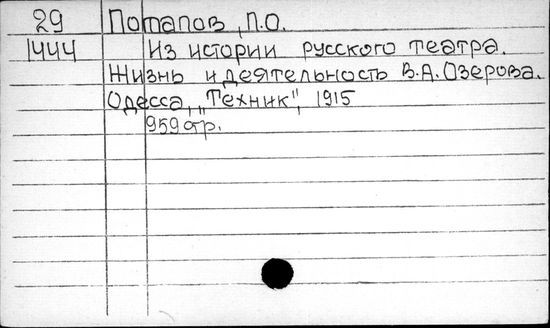 29 Потапов, П.О.
1444 Из истории русского театра.
Жизнь и деятельность В.А.Озерова.
Одесса, "Техник", 1915
959 стр.